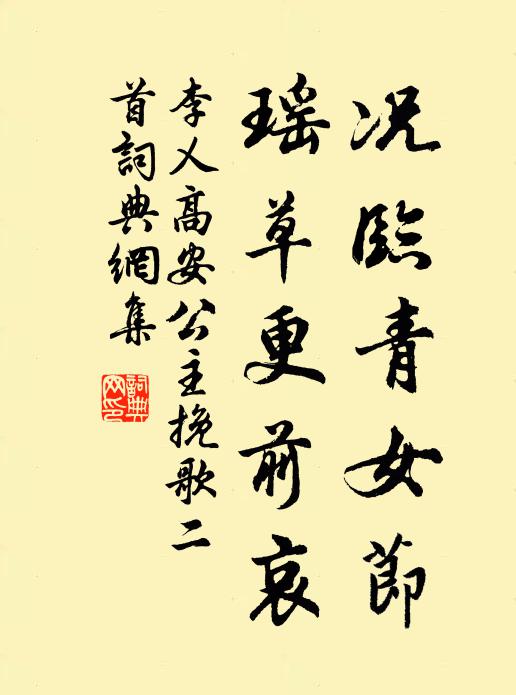 况臨青女節
瑶草更前哀
李乂高安公主挽歌二
首詞典網集
詞典
网印